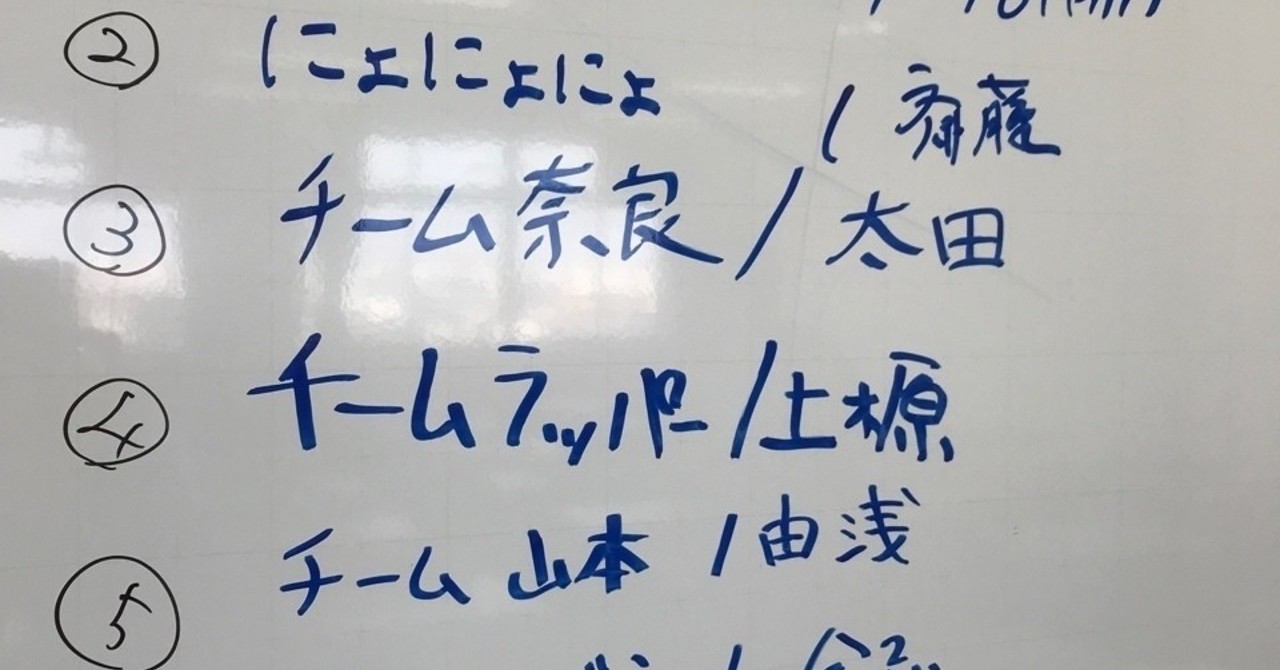 ② にょにょにょ / 斉藤
③ チーム奈良 / 太田
④ チームラッパー / 上原
⑤ チーム山本 / 由浅